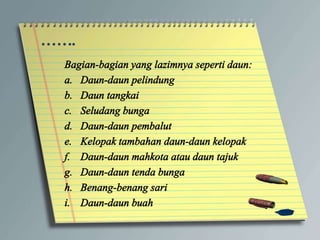 …….
Bagian-bagian yang lazimnya seperti daun:
a. Daun-daun pelindung
b. Daun tangkai
c. Seludang bunga
d. Daun-daun pembalut
e. Kelopak tambahan daun-daun kelopak
f. Daun-daun mahkota atau daun tajuk
g. Daun-daun tenda bunga
h. Benang-benang sari
i. Daun-daun buah